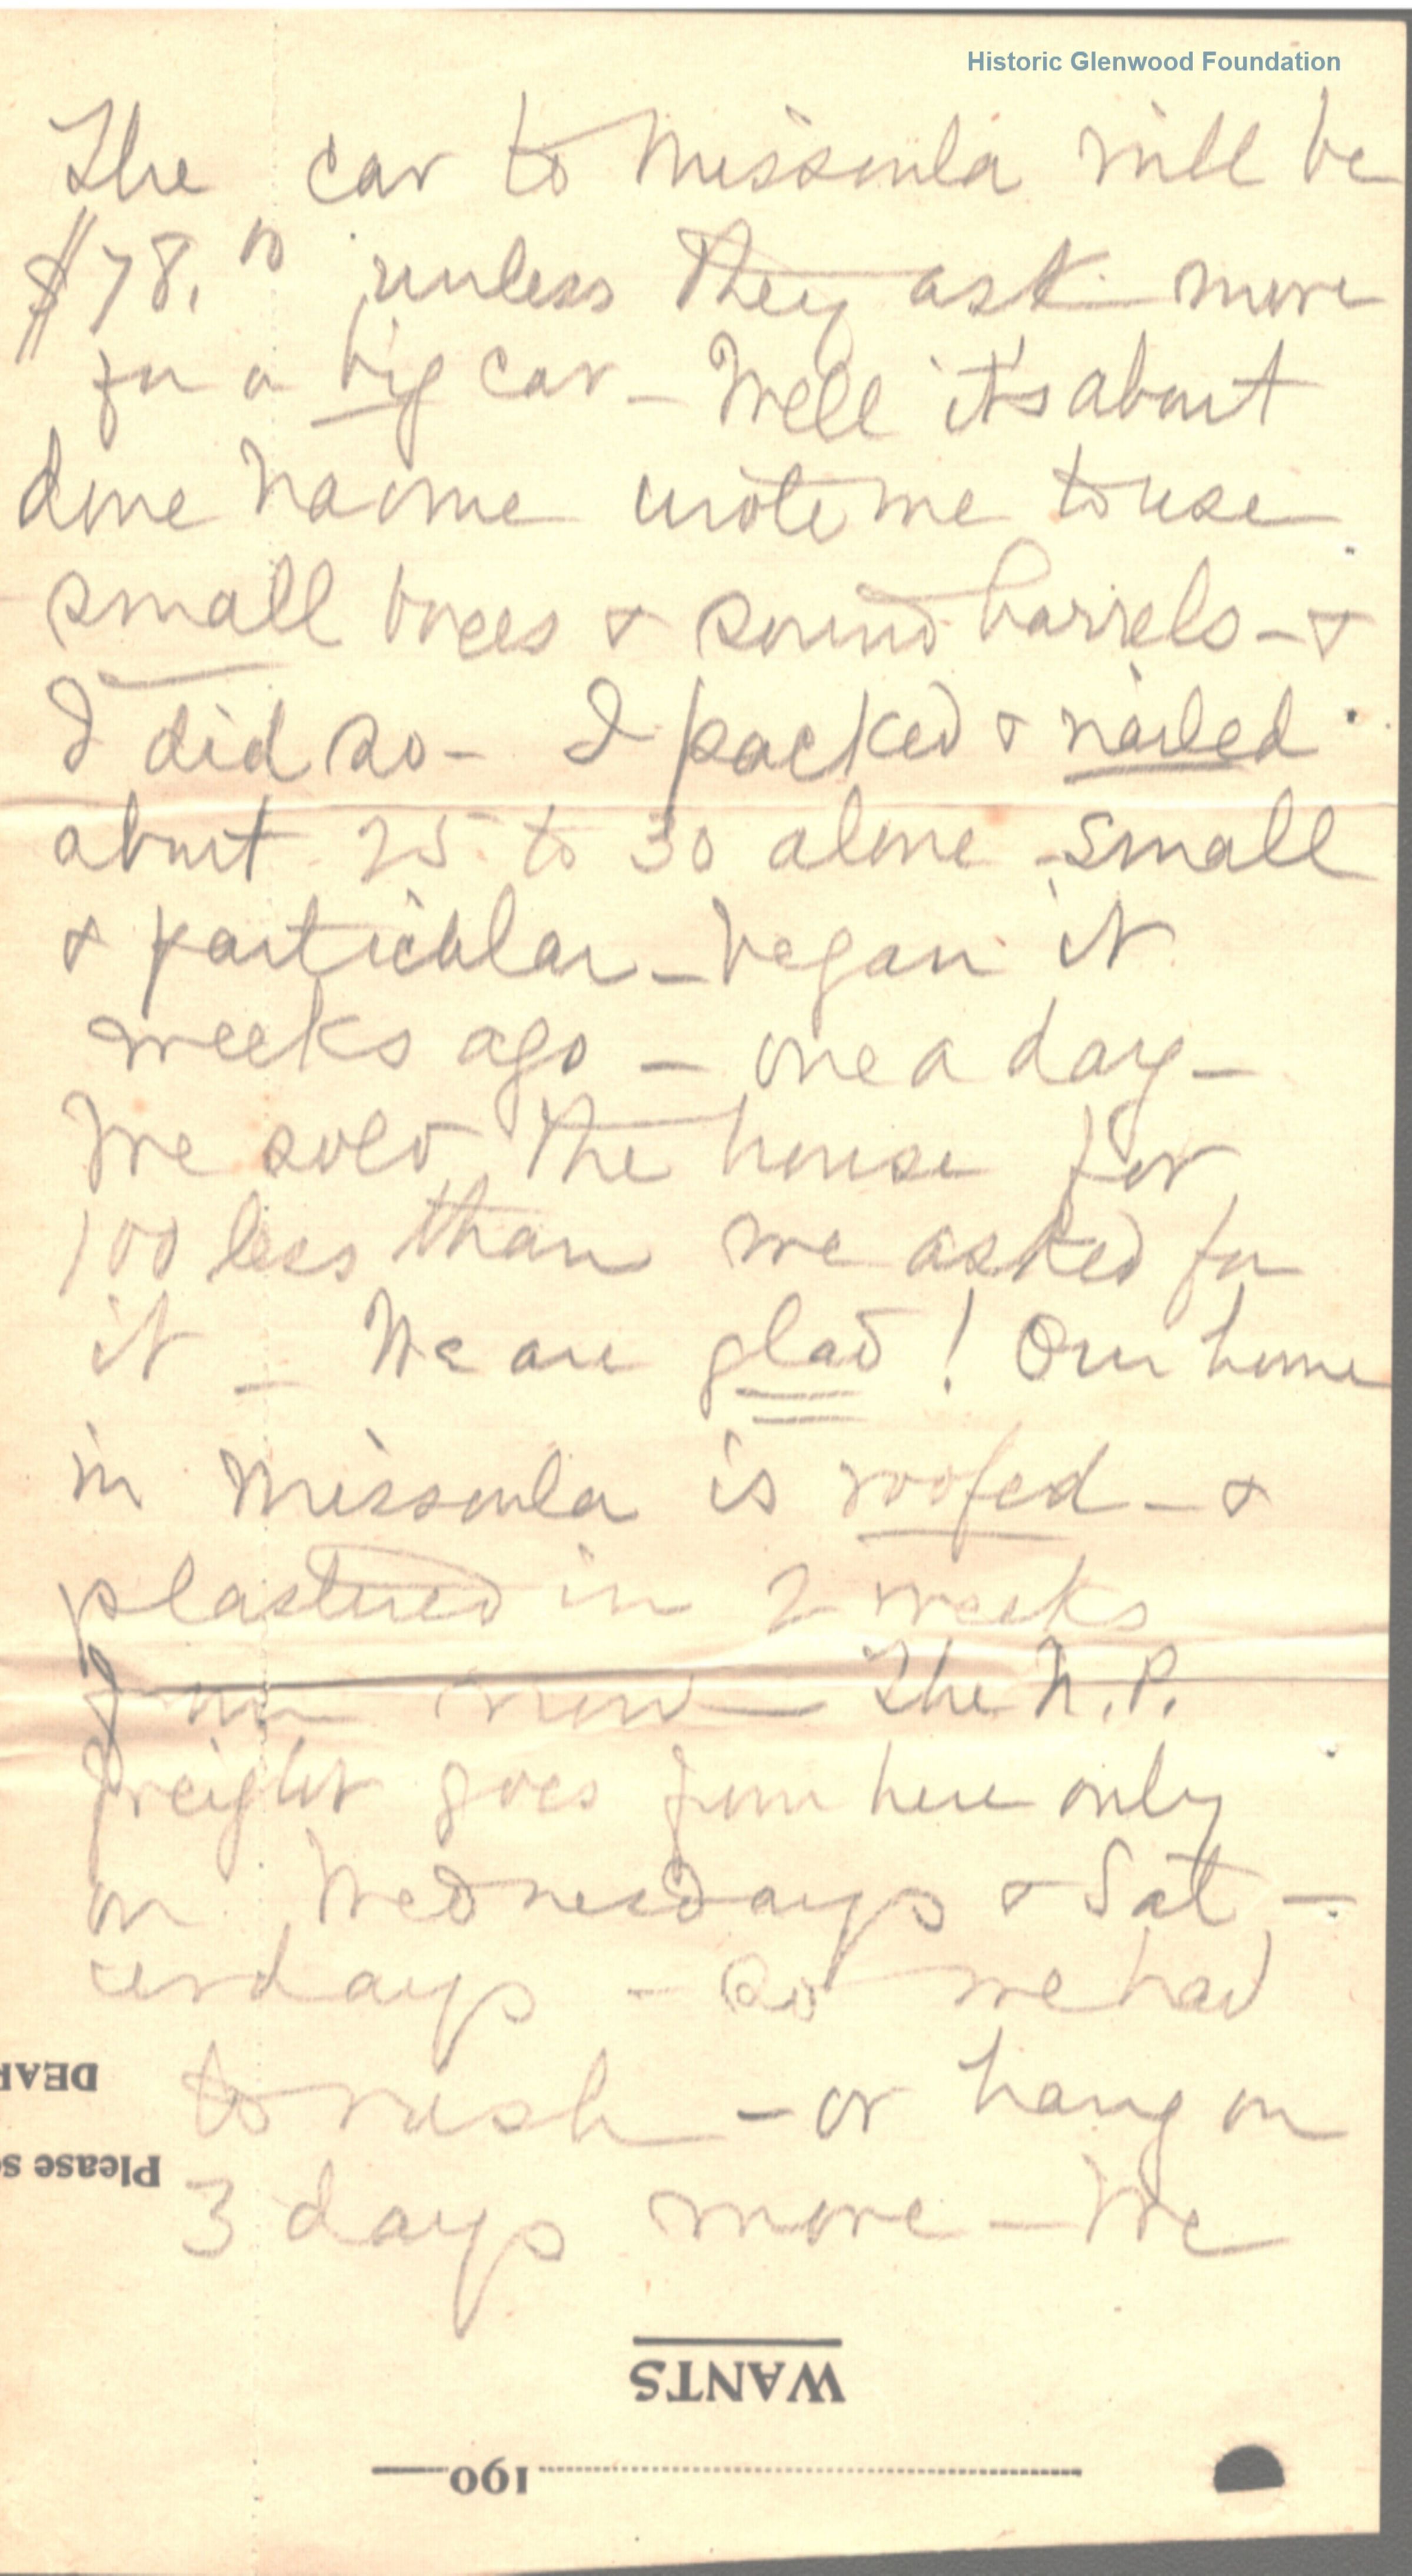 Historic Glenwood Foundation
The car to Missoula will be
$78.00 unless they ask more
for a big car — Well it's about
done Naome wrote me to use
small boxes & sound barrels — &
I did so — I packed & nailed
about 25 to 30 alone small
& particular — began it
weeks ago — one a day —
We sold the house for
100 less than we asked for
it — We are glad! Our home
in Missoula is roofed — &
plastered in 2 weeks
from now — The N.P.
freight goes from here only
on Wednesdays & Sat —
urdays — So we had
to rush — or hang on
3 days more — We
DEAR
Please s
WANTS
190